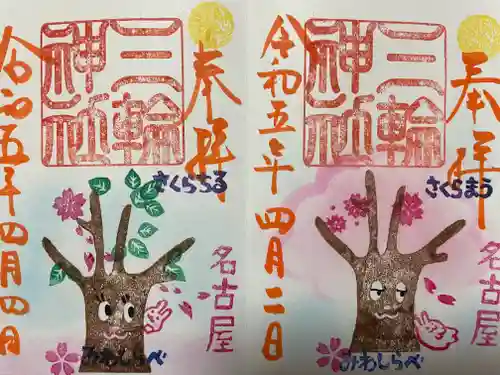 奉拝
三輪神社
さくらちる
令和五年四月四日
名古屋
みわしらべ
奉拝
三輪神社
さくらまう
令和五年四月二日
名古屋
みわしらべ